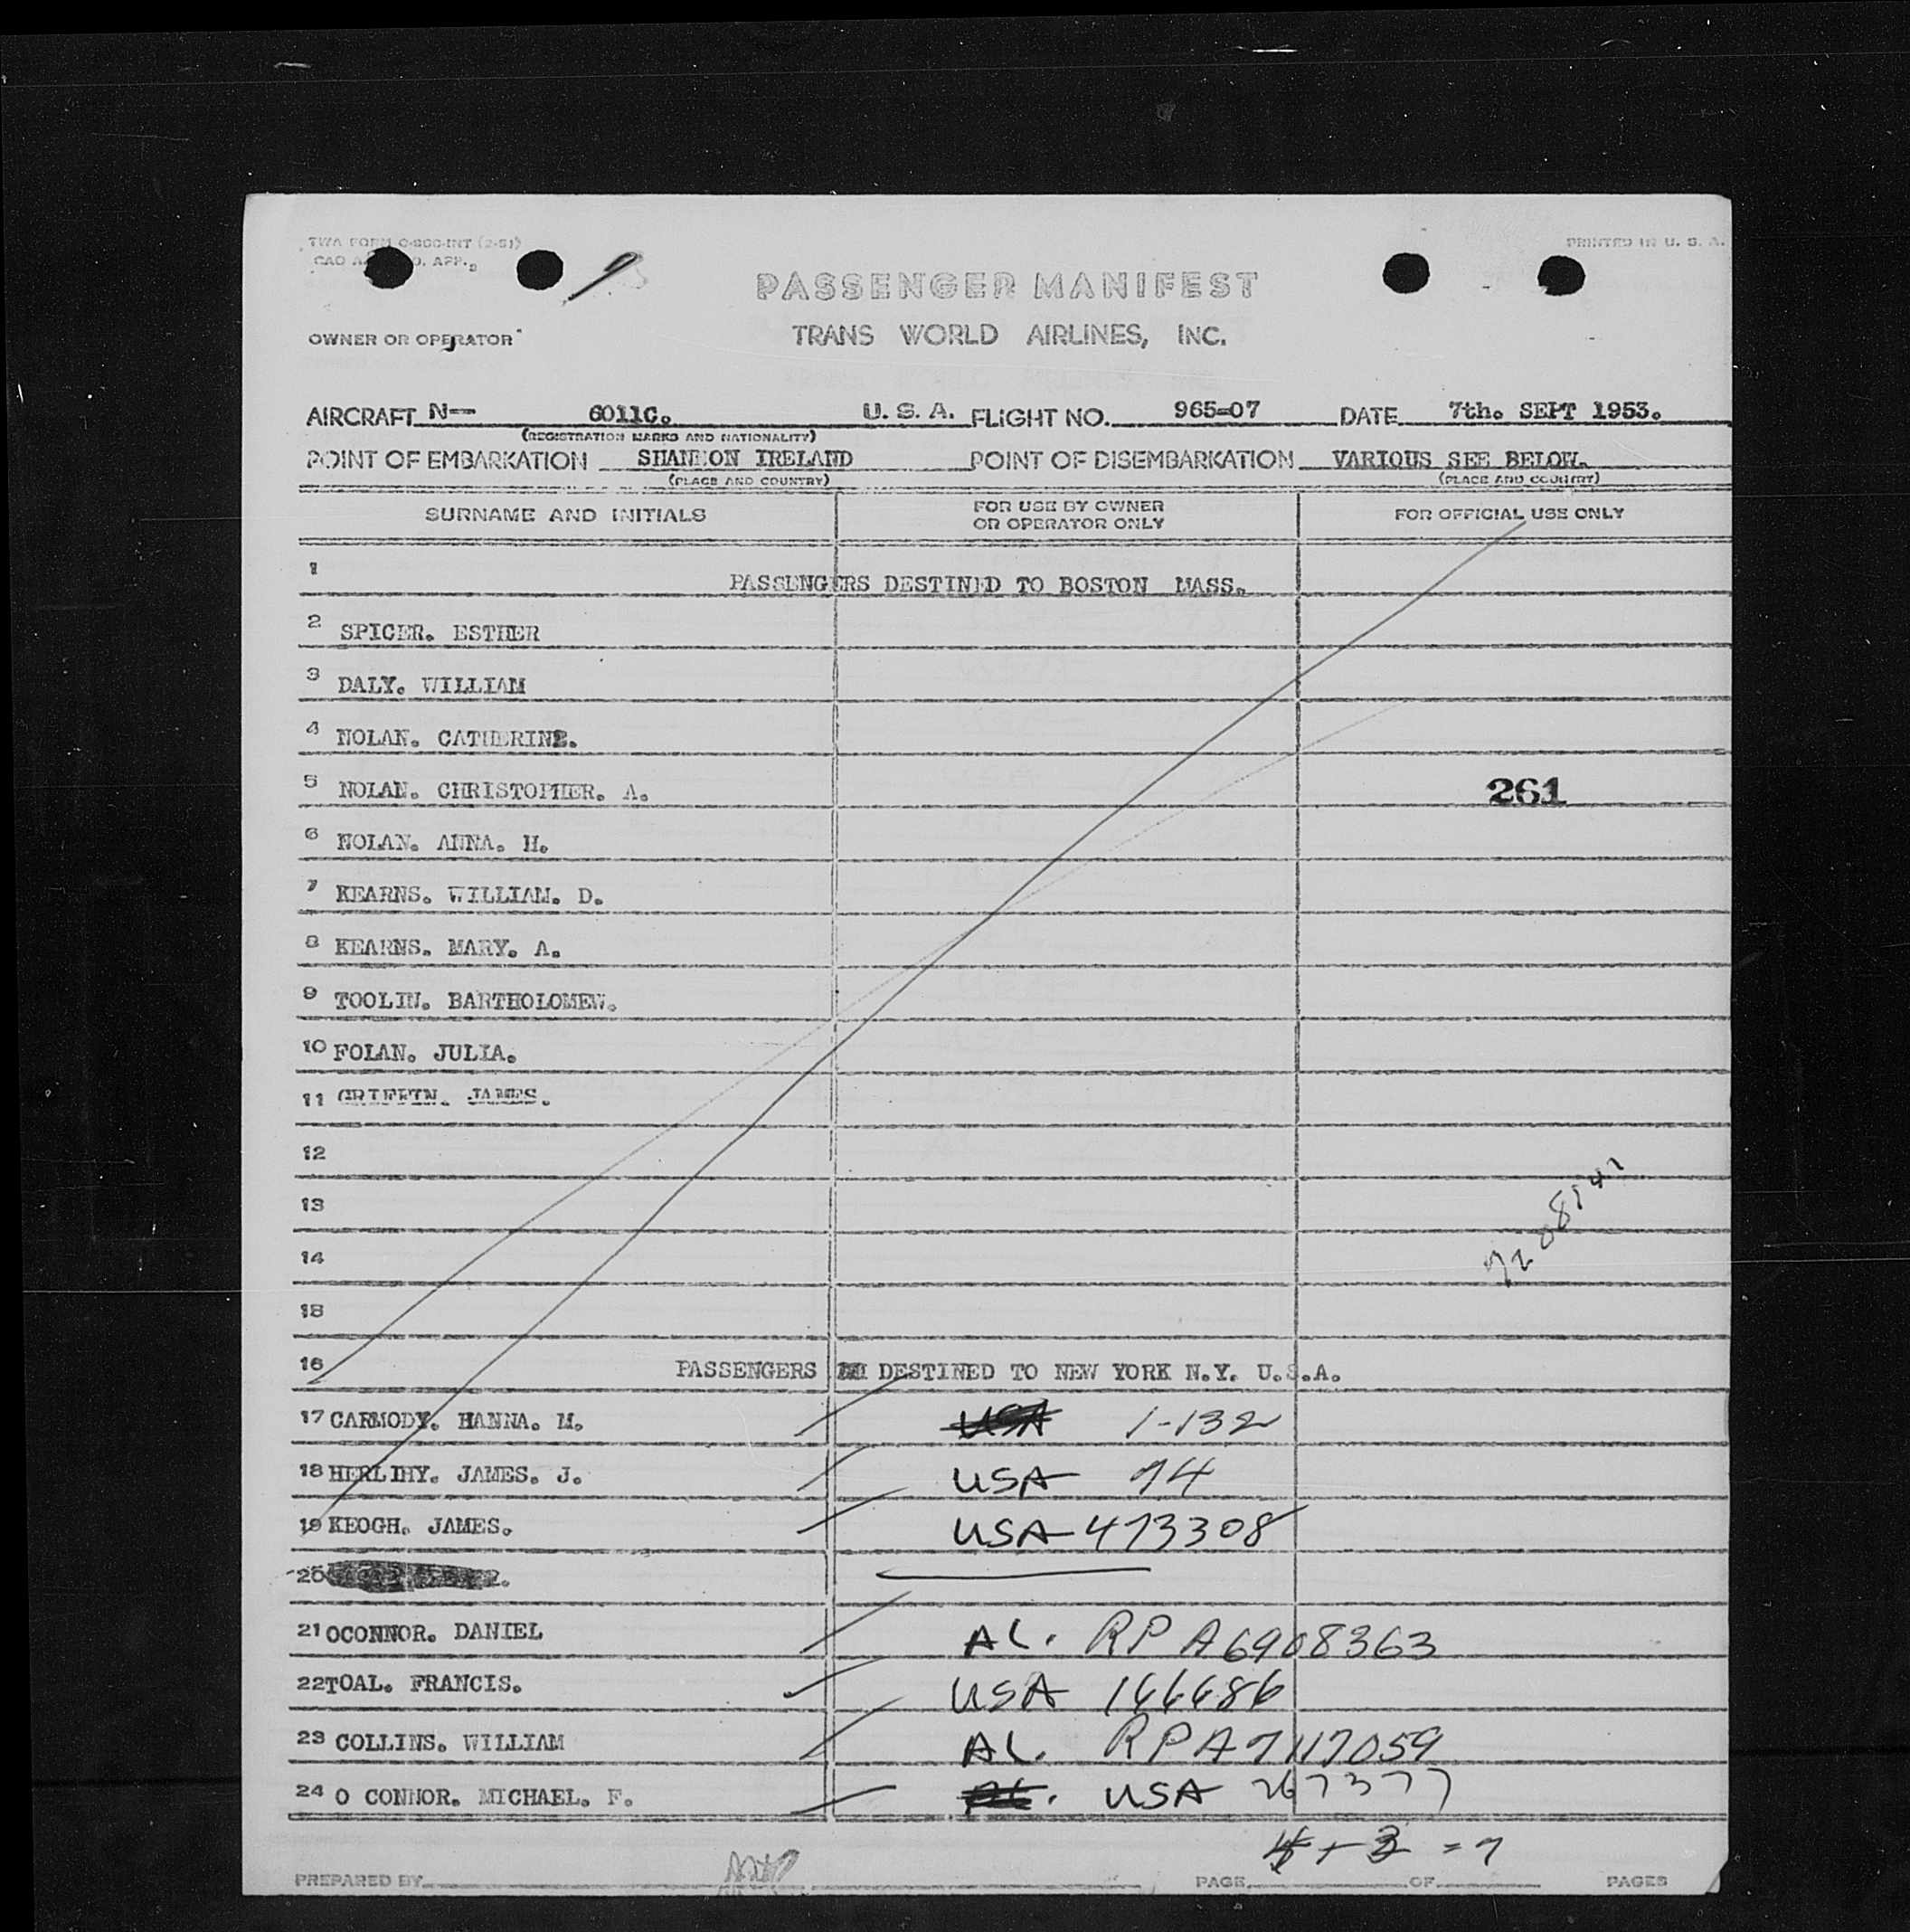 TWA FORM O-800-INT (2-51)
PRINTED IN U. S. A.
CAO APP.
PASSENGER MANIFEST
OWNER OR OPERATOR
TRANS WORLD AIRLINES, INC.
AIRCRAFT N— 6011C. U. S. A. FLIGHT NO. 965-07 DATE 7th. SEPT 1953.
(REGISTRATION MARKS AND NATIONALITY)
POINT OF EMBARKATION SHANNON IRELAND POINT OF DISEMBARKATION VARIOUS SEE BELOW.
(PLACE AND COUNTRY) (PLACE AND COUNTRY)
SURNAME AND INITIALS FOR USE BY OWNER OR OPERATOR ONLY FOR OFFICIAL USE ONLY
1 PASSENGERS DESTINED TO BOSTON MASS.
2 SPICER. ESTHER
3 DALY. WILLIAM
4 NOLAN. CATHERINE.
5 NOLAN. CHRISTOPHER. A. 261
6 NOLAN. ANNA. H.
7 KEARNS. WILLIAM. D.
8 KEARNS. MARY. A.
9 TOOLIN. BARTHOLOMEW.
10 FOLAN. JULIA.
11 GRIFFIN. JAMES.
12
13
14
15
16 PASSENGERS DESTINED TO NEW YORK N.Y. U.S.A.
17 CARMODY. HANNA. M. USA 1-132
18 HERLIHY. JAMES. J. USA 74
19 KEOGH. JAMES. USA 473308
20
21 OCONNOR. DANIEL AL. RP A6908363
22 TOAL. FRANCIS. USA 166686
23 COLLINS. WILLIAM AL. RPA7117059
24 O CONNOR. MICHAEL. F. AL. USA 267377
4 + 3 = 7
PREPARED BY PAGE OF PAGES